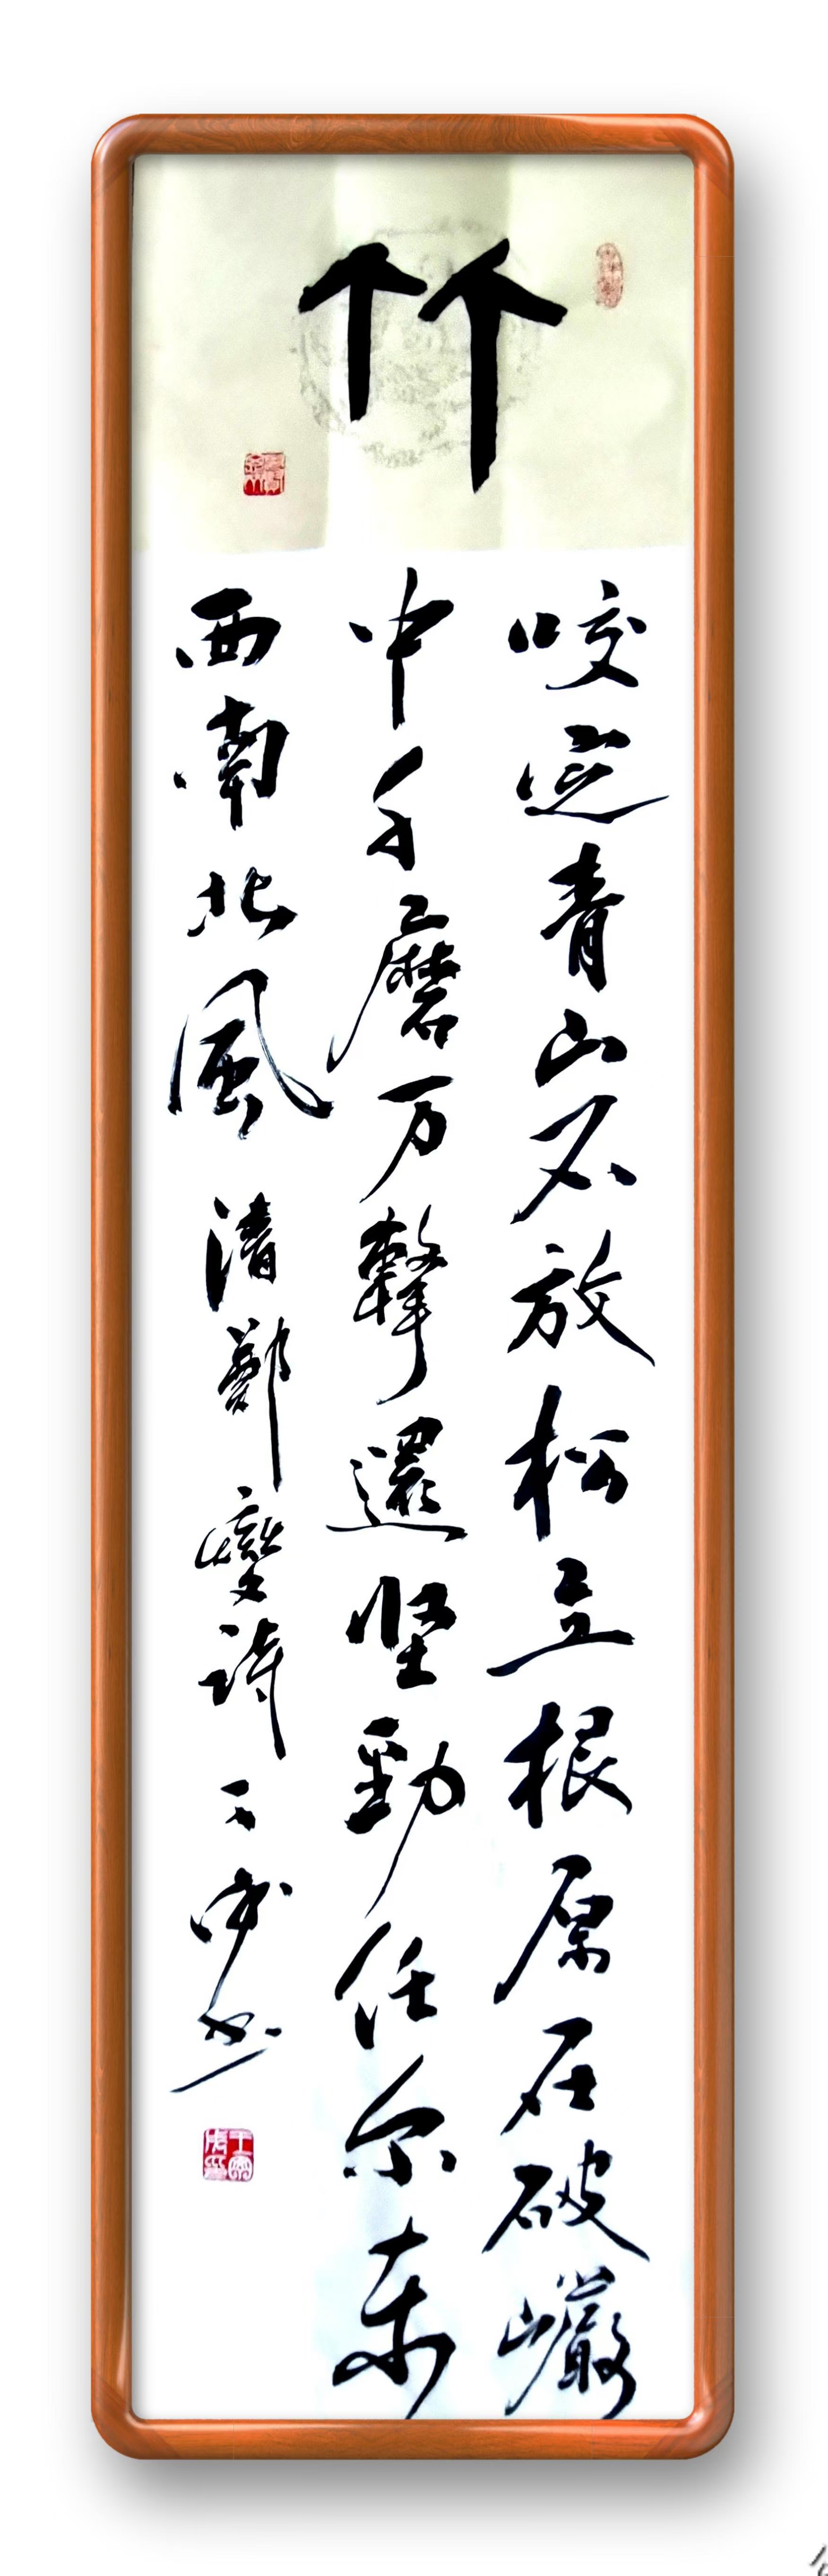 竹
咬定青山不放松立根原在破巖
中千磨万擊還坚勁任尔东
西南北風 清鄭燮詩